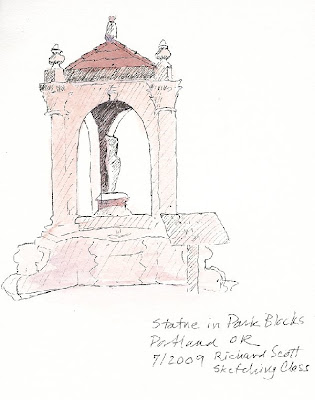 Statue in Park Blocks
Portland OR
7/2009 Richard Scott
Sketching Class